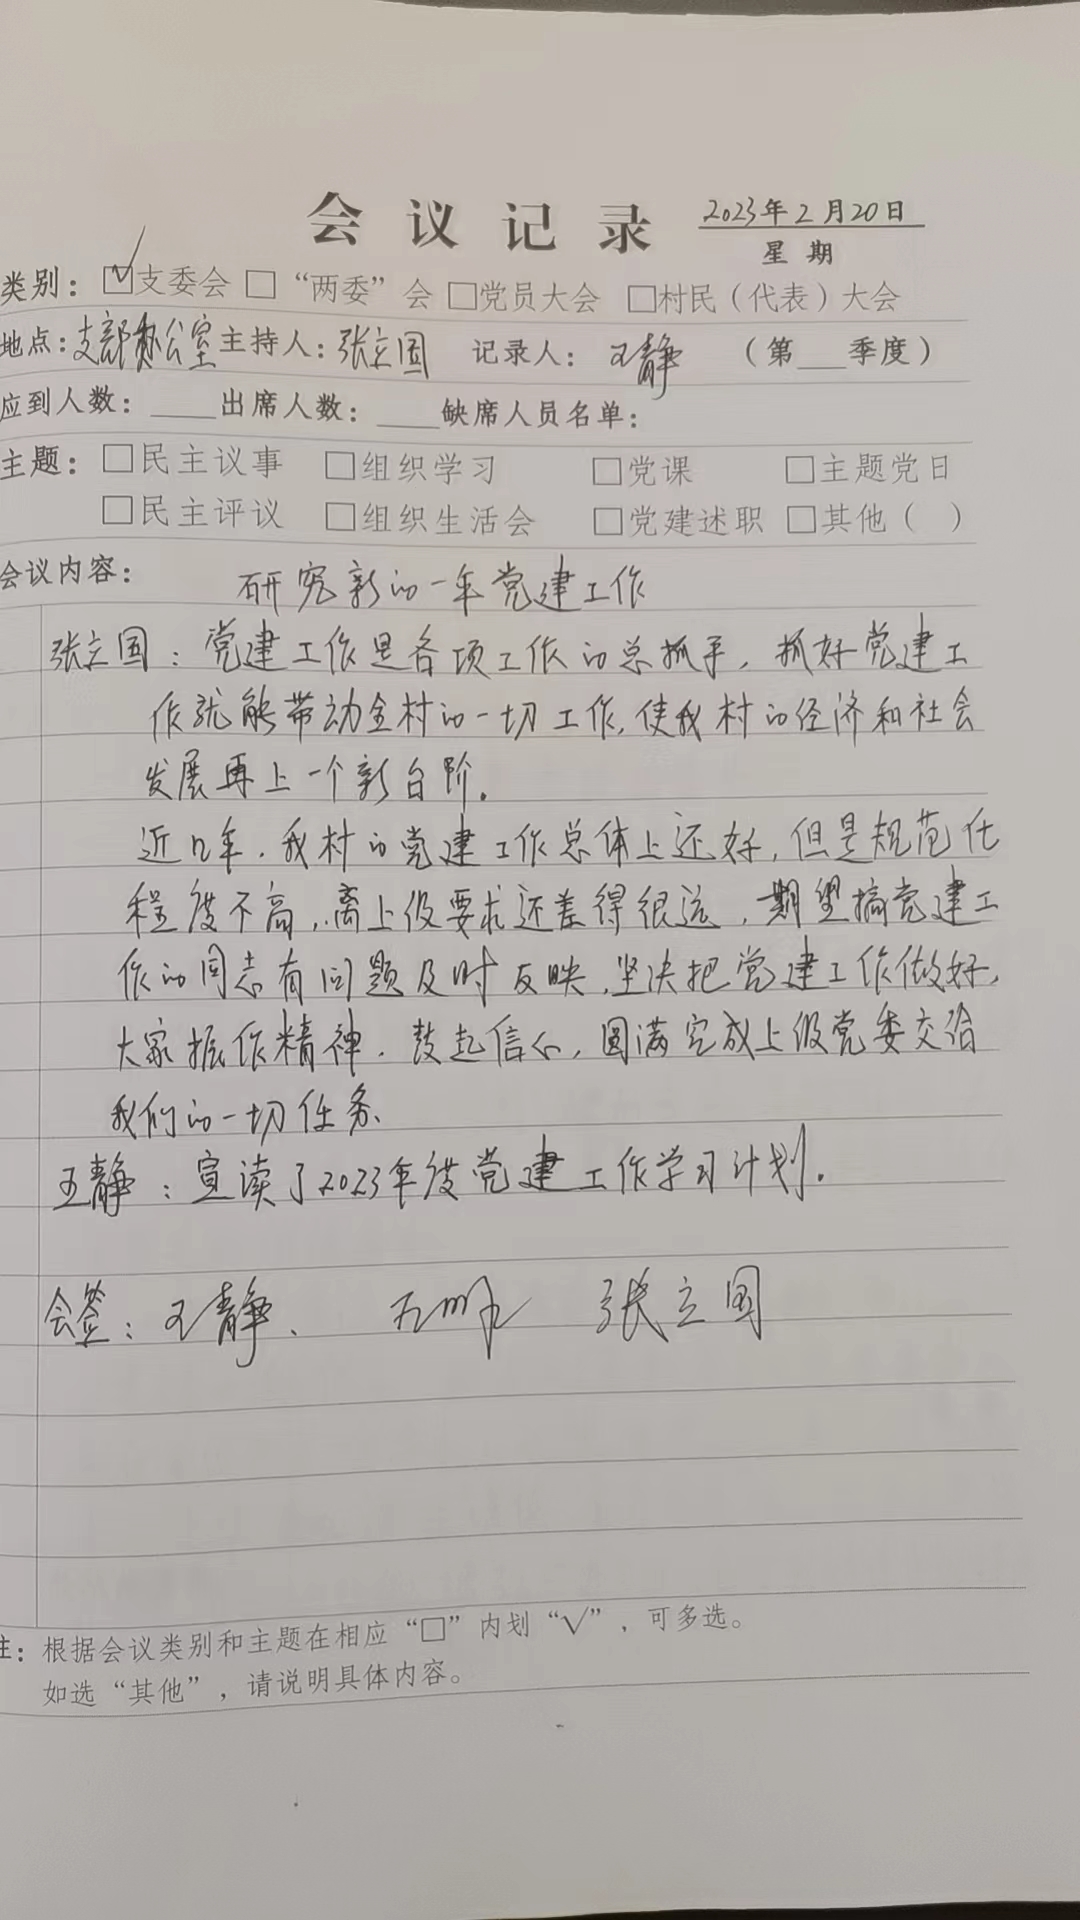 会议记录 2023年2月20日
星期
类别：☑支委会 □“两委”会 □党员大会 □村民（代表）大会
地点：支部办公室 主持人：张立国 记录人：王静 （第___季度）
应到人数：____出席人数：____缺席人员名单：
主题：□民主议事 □组织学习 □党课 □主题党日
□民主评议 □组织生活会 □党建述职 □其他（ ）
会议内容： 研究新的一年党建工作
张立国：党建工作是各项工作的总抓手，抓好党建工
作就能带动全村的一切工作，使我村的经济和社会
发展再上一个新台阶。
近几年，我村的党建工作总体上还好，但是规范化
程度不高，离上级要求还差得很远，期望搞党建工
作的同志有问题及时反映，坚决把党建工作做好，
大家振作精神，鼓起信心，圆满完成上级党委交给
我们的一切任务、
王静：宣读了2023年度党建工作学习计划。
会签：王静、 张立国
注：根据会议类别和主题在相应“□”内划“√”，可多选。
如选“其他”，请说明具体内容。